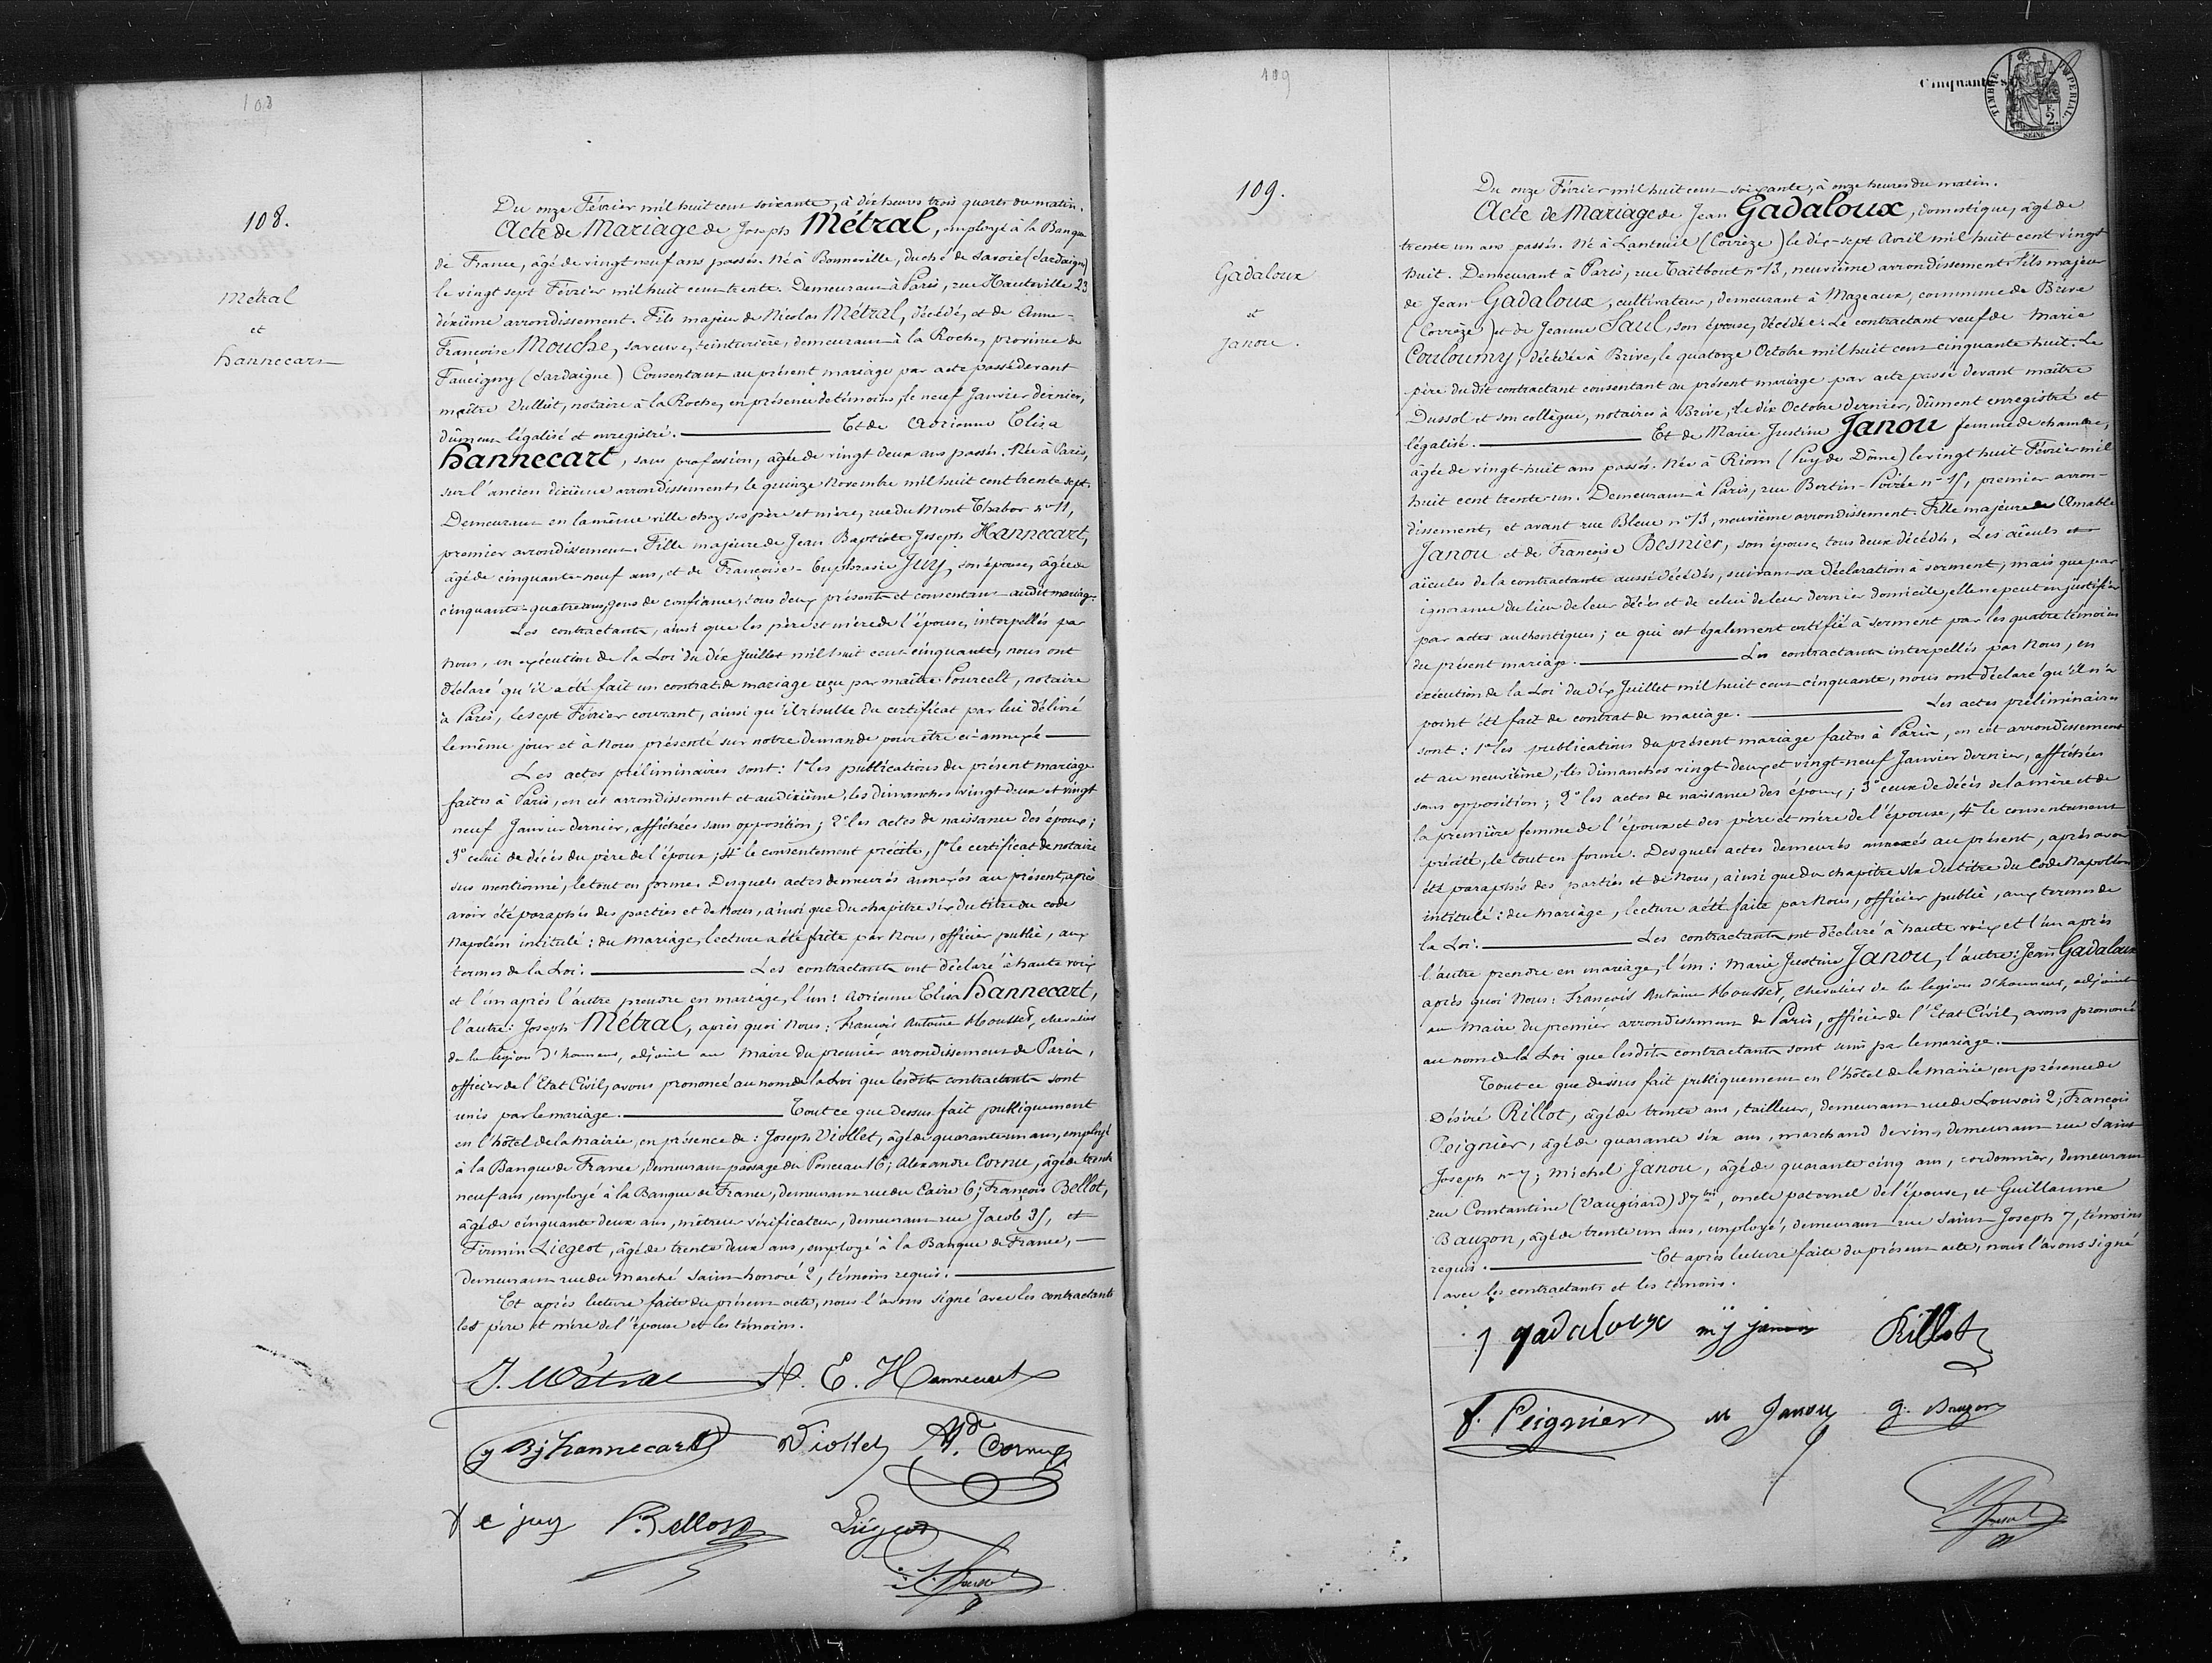 108
108.
Métral
et
hannecart
Du onze Février mil huit cent soixante, à dix heures trois quarts du matin.
Acte de Mariage de Joseph Métral, employé à la Banque
de France, âgé de vingt neuf ans passés. Né à Bonneville, duché de Savoie (Sardaigne)
le vingt sept Février mil huit cent trente. Demeurant à Paris, rue Hauteville 23
dixième arrondissement. Fils majeur de Nicolas Métral, décédé, et de Anne-
Françoise Mouche, sa veuve, teinturière, demeurant à la Roche, province de
Faucigny (Sardaigne) Consentant au présent mariage par acte passé devant
maître Vulliet, notaire à la Roche, en présence de témoins, le neuf Janvier dernier,
dûment légalisé et enregistré. Et de Adrienne Elisa
hannecart, sans profession, âgée de vingt deux ans passés. Née à Paris,
sur l'ancien dixième arrondissement, le quinze Novembre mil huit cent trente sept.
Demeurant en la même ville chez ses père et mère, rue du Mont Thabor n° 11,
premier arrondissement. Fille majeure de Jean Baptiste Joseph Hannecart,
âgé de cinquante-neuf ans, et de Françoise-Euphrasie Juy, son épouse, âgée de
cinquante-quatre ans, gens de confiance, tous deux présents et consentant audit mariage.
Les contractants, ainsi que les père et mère de l'épouse, interpellés par
Nous, en exécution de la Loi du dix Juillet mil huit cent cinquante, nous ont
déclaré qu'il a été fait un contrat de mariage reçu par maître Pourcelt, notaire
à Paris, le sept Février courant, ainsi qu'il résulte du certificat par lui délivré
le même jour et à Nous présenté sur notre demande pour être ci-annexé
Les actes préliminaires sont: 1° les publications du présent mariage
faites à Paris, en cet arrondissement et au dixième, les dimanches vingt deux et vingt
neuf Janvier dernier, affichées sans opposition; 2° les actes de naissance des époux;
3° celui de décès du père de l'époux; 4° le consentement précité, 5° le certificat de notaire
sus mentionné, le tout en forme. Desquels actes demeurés annexés au présent, après
avoir été paraphés des parties et de Nous, ainsi que du chapitre six du titre du code
Napoléon intitulé: du Mariage, lecture a été faite par Nous, officier public, aux
termes de la Loi. Les contractants ont déclaré à haute voix
et l'un après l'autre prendre en mariage, l'un: Adrienne Elisa hannecart,
l'autre: Joseph Métral, après quoi Nous: François Antoine Mousset, chevalier
de la légion d'honneur, adjoint au Maire du premier arrondissement de Paris,
officier de l'Etat Civil, avons prononcé au nom de la Loi que lesdits contractants sont
unis par le mariage. Tout ce que dessus fait publiquement
en l'hôtel de la mairie, en présence de: Joseph Viollet, âgé de quarante un ans, employé
à la Banque de France, demeurant passage du Ponceau 16; Alexandre Cornu, âgé de trente
neuf ans, employé à la Banque de France, demeurant rue du Caire 6; François Bellot,
âgé de cinquante deux ans, métreur vérificateur, demeurant rue Jacob 35, et
Firmin Liegeot, âgé de trente deux ans, employé à la Banque de France,
demeurant rue du Marché Saint-honoré 2, témoins requis.
Et après lecture faite du présent acte, nous l'avons signé avec les contractants
les père et mère de l'épouse et les témoins.
J. Métral A. E. Hannecart
J Bj hannecart Viollet Ad Cornu
f e juy Bellot Liegeot
109
Cinquante
TIMBRE IMPERIAL
F.
2.
SEINE
109.
Gadaloux
et
Janou.
Du onze Février mil huit cent soixante, à onze heures du matin.
Acte de Mariage de Jean Gadaloux, domestique, âgé de
trente un ans passés. Né à Lanteuil (Corrèze) le dix-sept Avril mil huit cent vingt
huit. Demeurant à Paris, rue Taitbout n° 13, neuvième arrondissement. Fils majeur
de Jean Gadaloux, cultivateur, demeurant à Mazeaux, commune de Brive
(Corrèze) et de Jeanne Saul, son épouse, décédée. Le contractant veuf de Marie
Couloumy, décédée à Brive, le quatorze Octobre mil huit cent cinquante huit. Le
père du dit contractant consentant au présent mariage par acte passé devant maître
Dussol et son collègue, notaires à Brive, le dix Octobre dernier, dûment enregistré et
légalisé. Et de Marie Justine Janou femme de chambre,
âgée de vingt-huit ans passés. Née à Riom (Puy de Dôme) le vingt huit Février mil
huit cent trente-un. Demeurant à Paris, rue Bertin-Poirée n° 15, premier arron-
dissement, et avant rue Bleue n° 13, neuvième arrondissement. Fille majeure de Amable
Janou et de Françoise Besnier, son épouse, tous deux décédés, Les aïeuls et
aïeules de la contractante aussi décédés, suivant sa déclaration à serment, mais que par
ignorance du lieu de leur décès et de celui de leur dernier domicile, elle ne peut en justifier
par actes authentiques; ce qui est également certifié à serment par les quatre témoins
du présent mariage. Les contractants interpellés par Nous, en
exécution de la Loi du dix Juillet mil huit cent cinquante, nous ont déclaré qu'il n'a
point été fait de contrat de mariage. Les actes préliminaires
sont: 1° les publications du présent mariage faites à Paris, en cet arrondissement
et au neuvième, les dimanches vingt-deux et vingt-neuf Janvier dernier, affichées
sans opposition; 2° les actes de naissance des époux; 3° ceux de décès de la mère et de
la première femme de l'époux et des père et mère de l'épouse, 4° le consentement
précité, le tout en forme. Desquels actes demeurés annexés au présent, après avoir
été paraphés des parties et de Nous, ainsi que du chapitre six du titre du Code Napoléon
intitulé: du Mariage, lecture a été faite par Nous, officier public, aux termes de
la Loi. Les contractants ont déclaré à haute voix et l'un après
l'autre prendre en mariage, l'un: Marie Justine Janou, l'autre: Jean Gadaloux
après quoi Nous: François Antoine Mousset, chevalier de la légion d'honneur, adjoint
au Maire du premier arrondissement de Paris, officier de l'Etat Civil, avons prononcé
au nom de la Loi que lesdits contractants sont unis par le mariage.
Tout ce que dessus fait publiquement en l'hôtel de la mairie, en présence de
Désiré Rillot, âgé de trente ans, tailleur, demeurant rue de Louvois 2; François
Peignier, âgé de quarante six ans, marchand de vin, demeurant rue Saint
Joseph n° 7; Michel Janou, âgé de quarante cinq ans, cordonnier, demeurant
rue Constantine (Vaugirard) 87 bis, oncle paternel de l'épouse, et Guillaume
Bauzon, âgé de trente un ans, employé, demeurant rue Saint Joseph 7, témoins
requis. Et après lecture faite du présent acte, nous l'avons signé
avec les contractants et les témoins.
J gadaloux mj janou Rillot
f. Peignier M Janou g. Bauzon